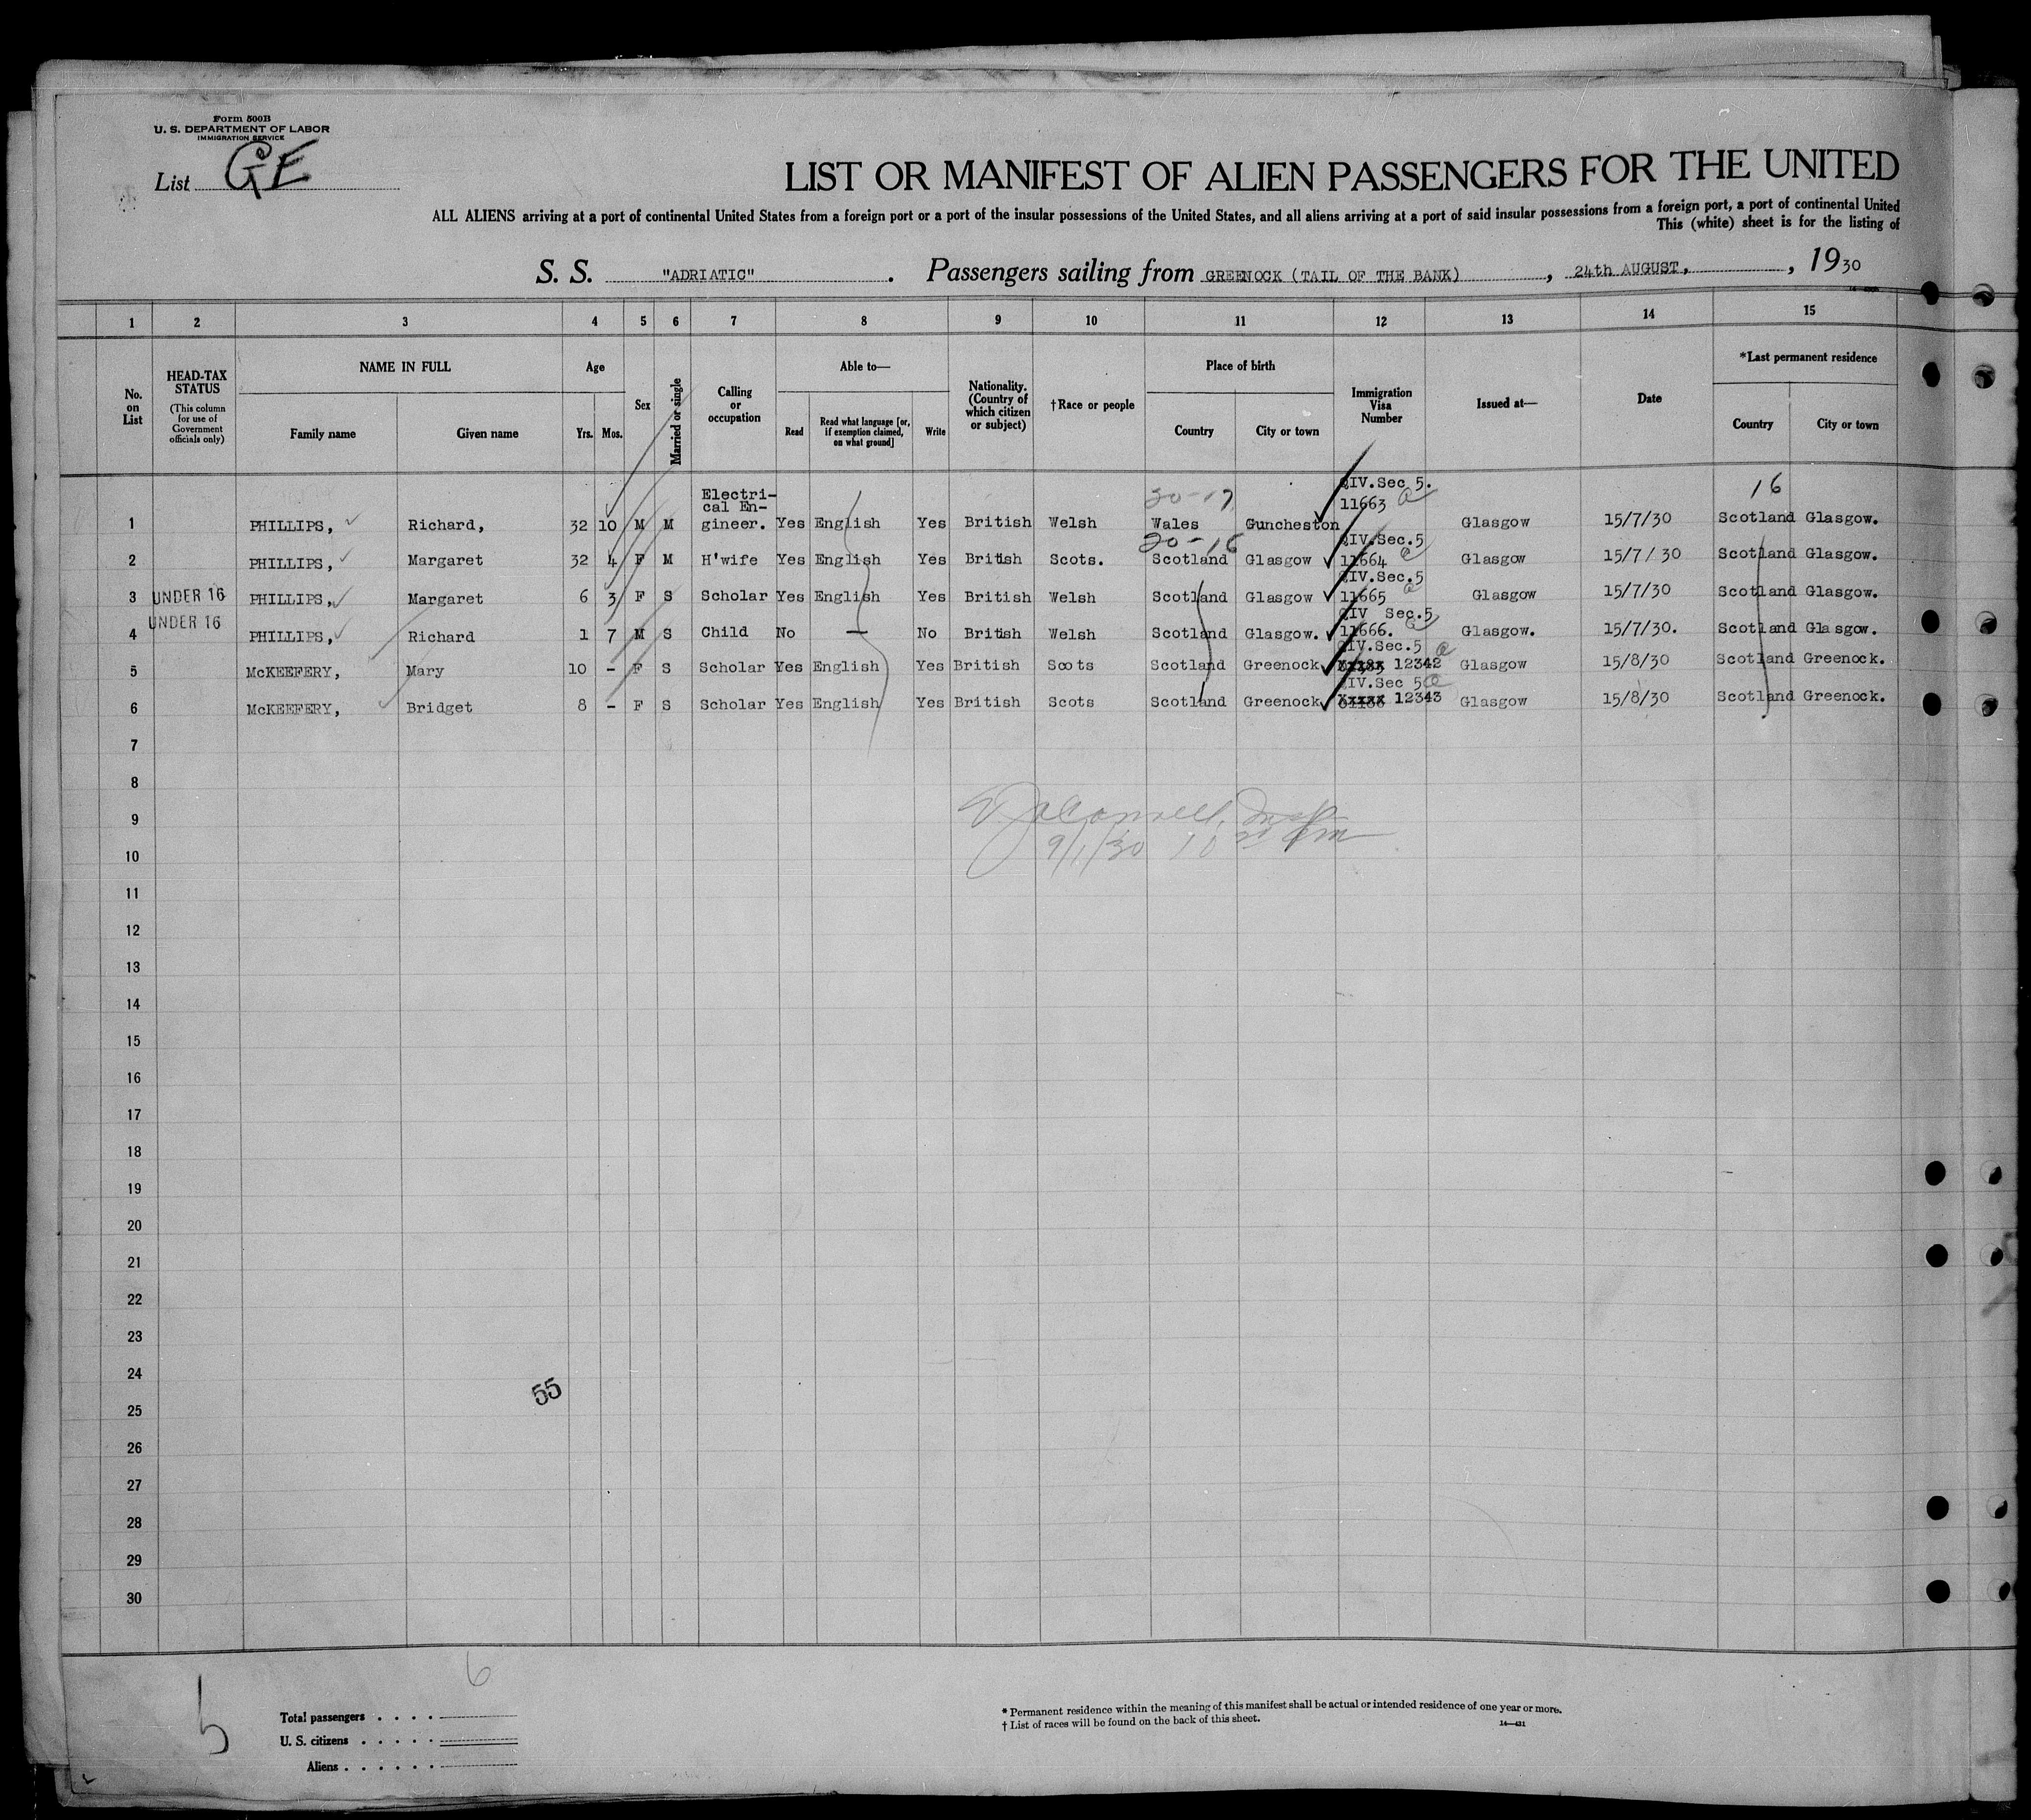 Form 500B
U. S. DEPARTMENT OF LABOR
IMMIGRATION SERVICE
List GE
LIST OR MANIFEST OF ALIEN PASSENGERS FOR THE UNITED
ALL ALIENS arriving at a port of continental United States from a foreign port or a port of the insular possessions of the United States, and all aliens arriving at a port of said insular possessions from a foreign port, a port of continental United
This (white) sheet is for the listing of
S. S. "ADRIATIC" . Passengers sailing from GREENOCK (TAIL OF THE BANK) , 24th AUGUST, , 1930
1 2 3 4 5 6 7 8 9 10 11 12 13 14 15
No. on List
HEAD-TAX STATUS
(This column for use of Government officials only)
NAME IN FULL
Family name Given name
Age
Yrs. Mos.
Sex
Married or single
Calling or occupation
Able to—
Read
Read what language [or, if exemption claimed, on what ground]
Write
Nationality. (Country of which citizen or subject)
†Race or people
Place of birth
Country City or town
Immigration Visa Number
Issued at—
Date
*Last permanent residence
Country City or town
20-17 QIV.Sec 5. 16
1 PHILLIPS, Richard, 32 10 M M Electri-cal En-gineer. Yes English Yes British Welsh Wales Guncheston 11663 Glasgow 15/7/30 Scotland Glasgow.
20-16 QIV.Sec.5
2 PHILLIPS, Margaret 32 4 F M H'wife Yes English Yes British Scots. Scotland Glasgow 11664 Glasgow 15/7/30 Scotland Glasgow.
QIV.Sec.5
3 UNDER 16 PHILLIPS, Margaret 6 3 F S Scholar Yes English Yes British Welsh Scotland Glasgow 11665 Glasgow 15/7/30 Scotland Glasgow.
QIV Sec.5
4 UNDER 16 PHILLIPS, Richard 1 7 M S Child No — No British Welsh Scotland Glasgow. 11666. Glasgow. 15/7/30. Scotland Glasgow.
QIV.Sec.5
5 McKEEFERY, Mary 10 - F S Scholar Yes English Yes British Scots Scotland Greenock 12342 Glasgow 15/8/30 Scotland Greenock.
QIV.Sec 5
6 McKEEFERY, Bridget 8 - F S Scholar Yes English Yes British Scots Scotland Greenock 12343 Glasgow 15/8/30 Scotland Greenock.
7
8
9
9/1/30
10
11
12
13
14
15
16
17
18
19
20
21
22
23
24
55
25
26
27
28
29
30
6
5
Total passengers . . . .
U. S. citizens . . . . .
Aliens . . . . . .
* Permanent residence within the meaning of this manifest shall be actual or intended residence of one year or more.
† List of races will be found on the back of this sheet.
14—431